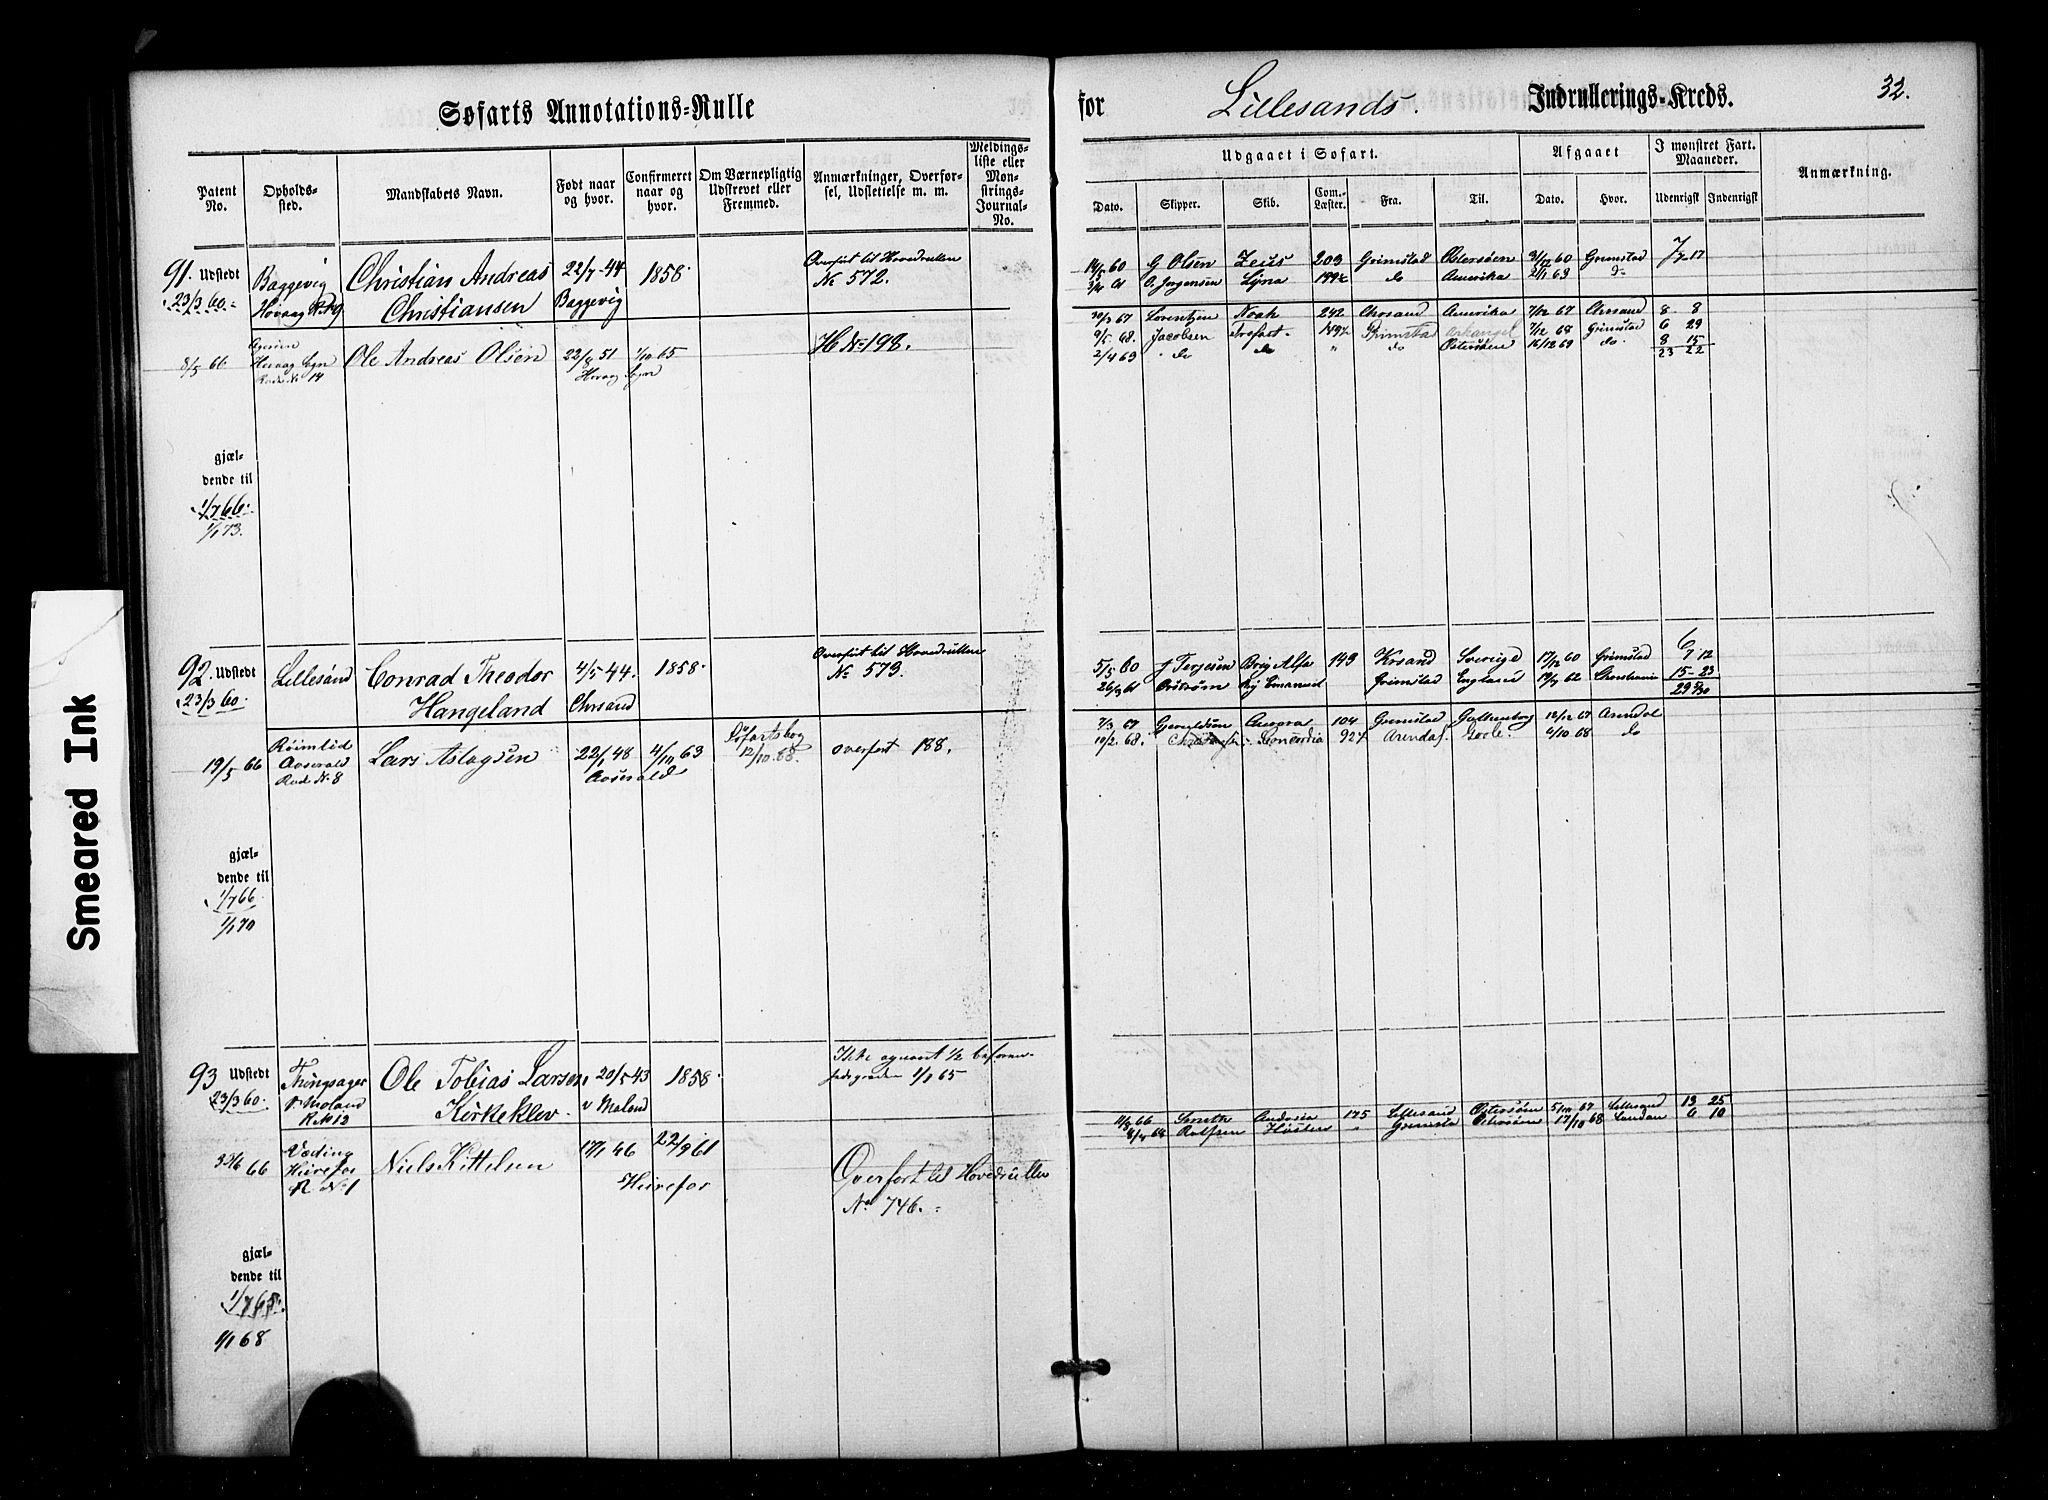 Søfarts Annotations-Rulle
for Lillesands. Indrullerings-Kreds. 32.
Patent No.
Opholds-sted.
Mandskabets Navn.
Født naar og hvor.
Confirmeret naar og hvor.
Om Værnepligtig Udskrevet eller Fremmed.
Anmærkninger, Overførsel, Udslettelse m. m.
Meldings-liste eller Mønstrings-Journal-No.
Udgaaet i Søfart.
Afgaaet
I mønstret Fart. Maaneder.
Anmærkning.
Dato. Skipper. Skib. Com.-Læster. Fra. Til. Dato. Hvor. Udenrigst Indenrigst
91. Udstedt
23/3 60.
Baggevig
Høvaag R. N 9
Christian Andreas
Christiansen
22/7-44
Baggevig
1858.
Overført til Hovedrullen
No 572.
14/5 60 G Olsen Zeus 203 Grimstad Østersøen 31/12 60 Grimstad 7 17
O. Jørgensen do Amerika 2/11 63 do
8/5 66
Høvaag Sogn
Rode No 14
Ole Andreas Olsen
22/8 51
Høvaag Sogn
1/10 65
H No 198.
20/3 67 Lorentzen Noah 242 Chrsand Amerika 7/12 67 Chrsand 8 8
9/5 68. Jacobsen Grimstad Arkangel 7/12 68 Grimstad 6 29
2/4 69 " do do " do Østersøen 16/12 69 do. 8 15
23 22
gjæl-
dende til
1/7 66.
1/1 73.
92. Udstedt
23/3 60.
Lillesand
Conrad Theodor
Hangeland
4/5-44.
Chrsand
1858.
Overført til Hovedrullen
No 573.
5/5 60 J Terjesen Brig Alfa 149 Krsand Sverige 17/12 60 Grimstad 6 12
Emanuel Grimstad England 19/7 62 15-23
19/5 66
Aaserald
Rode N. 8
Lars Aslagsen
22/1 48
Aaserald
4/10 63
Søfartsbog
12/10. 68.
overført 188.
7/3 67 Aurora 104 Grimstad Gøthenborg 12/12 67 Arendal
10/2. 68. Concordia 92 1/2 Arendal Goole. 6/10 68 do
gjæl-
dende til
1/7 66
1/1 70
93 Udstedt
23/3 60.
Thingsager
V. Moland
R. N 12
Ole Tobias Larsen
Kirkeklev.
20/5 43
V Moland
1858.
Ikke
1/1 65
66
Heirefos
R. No 1
Niels Kittelsen
17/1 46
22/9 61
Heirefos
Overført til Hovedrullen
No 746.
11/8 66 175 Lillesand Østersøen 67 Lillesand 13 25
8/4 68 Rolfsen Grimstad Østersøen 17/10 68 6 10
gjæl-
dende til
1/7 65.
1/1 68
Smeared Ink